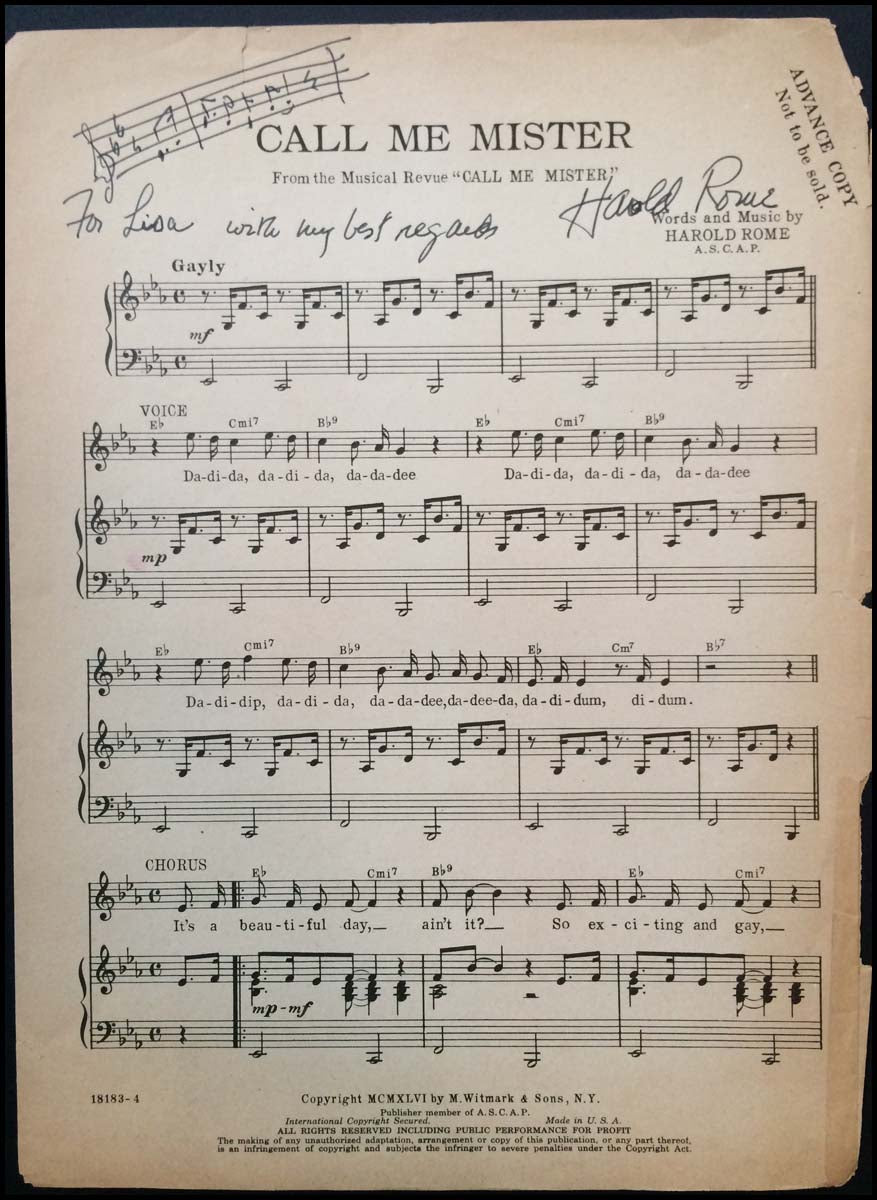 ADVANCE COPY
Not to be sold.
CALL ME MISTER
From the Musical Revue "CALL ME MISTER"
For Lisa with my best regards Harold Rome
Words and Music by
HAROLD ROME
A.S.C.A.P.
Gayly
mf
VOICE
E♭ Cmi7 B♭9 E♭ Cmi7 B♭9
Da-di-da, da-di-da, da-da-dee Da-di-da, da-di-da, da-da-dee
mp
E♭ Cmi7 B♭9 E♭ Cm7 B♭7
Da-di-dip, da-di-da, da-da-dee, da-dee-da, da-di-dum, di-dum.
CHORUS
E♭ Cmi7 B♭9 E♭ Cmi7
It's a beau-ti-ful day, ain't it? So ex-ci-ting and gay,
mp-mf
18183-4
Copyright MCMXLVI by M. Witmark & Sons, N.Y.
Publisher member of A.S.C.A.P.
International Copyright Secured. Made in U.S.A.
ALL RIGHTS RESERVED INCLUDING PUBLIC PERFORMANCE FOR PROFIT
The making of any unauthorized adaptation, arrangement or copy of this publication, or any part thereof,
is an infringement of copyright and subjects the infringer to severe penalties under the Copyright Act.